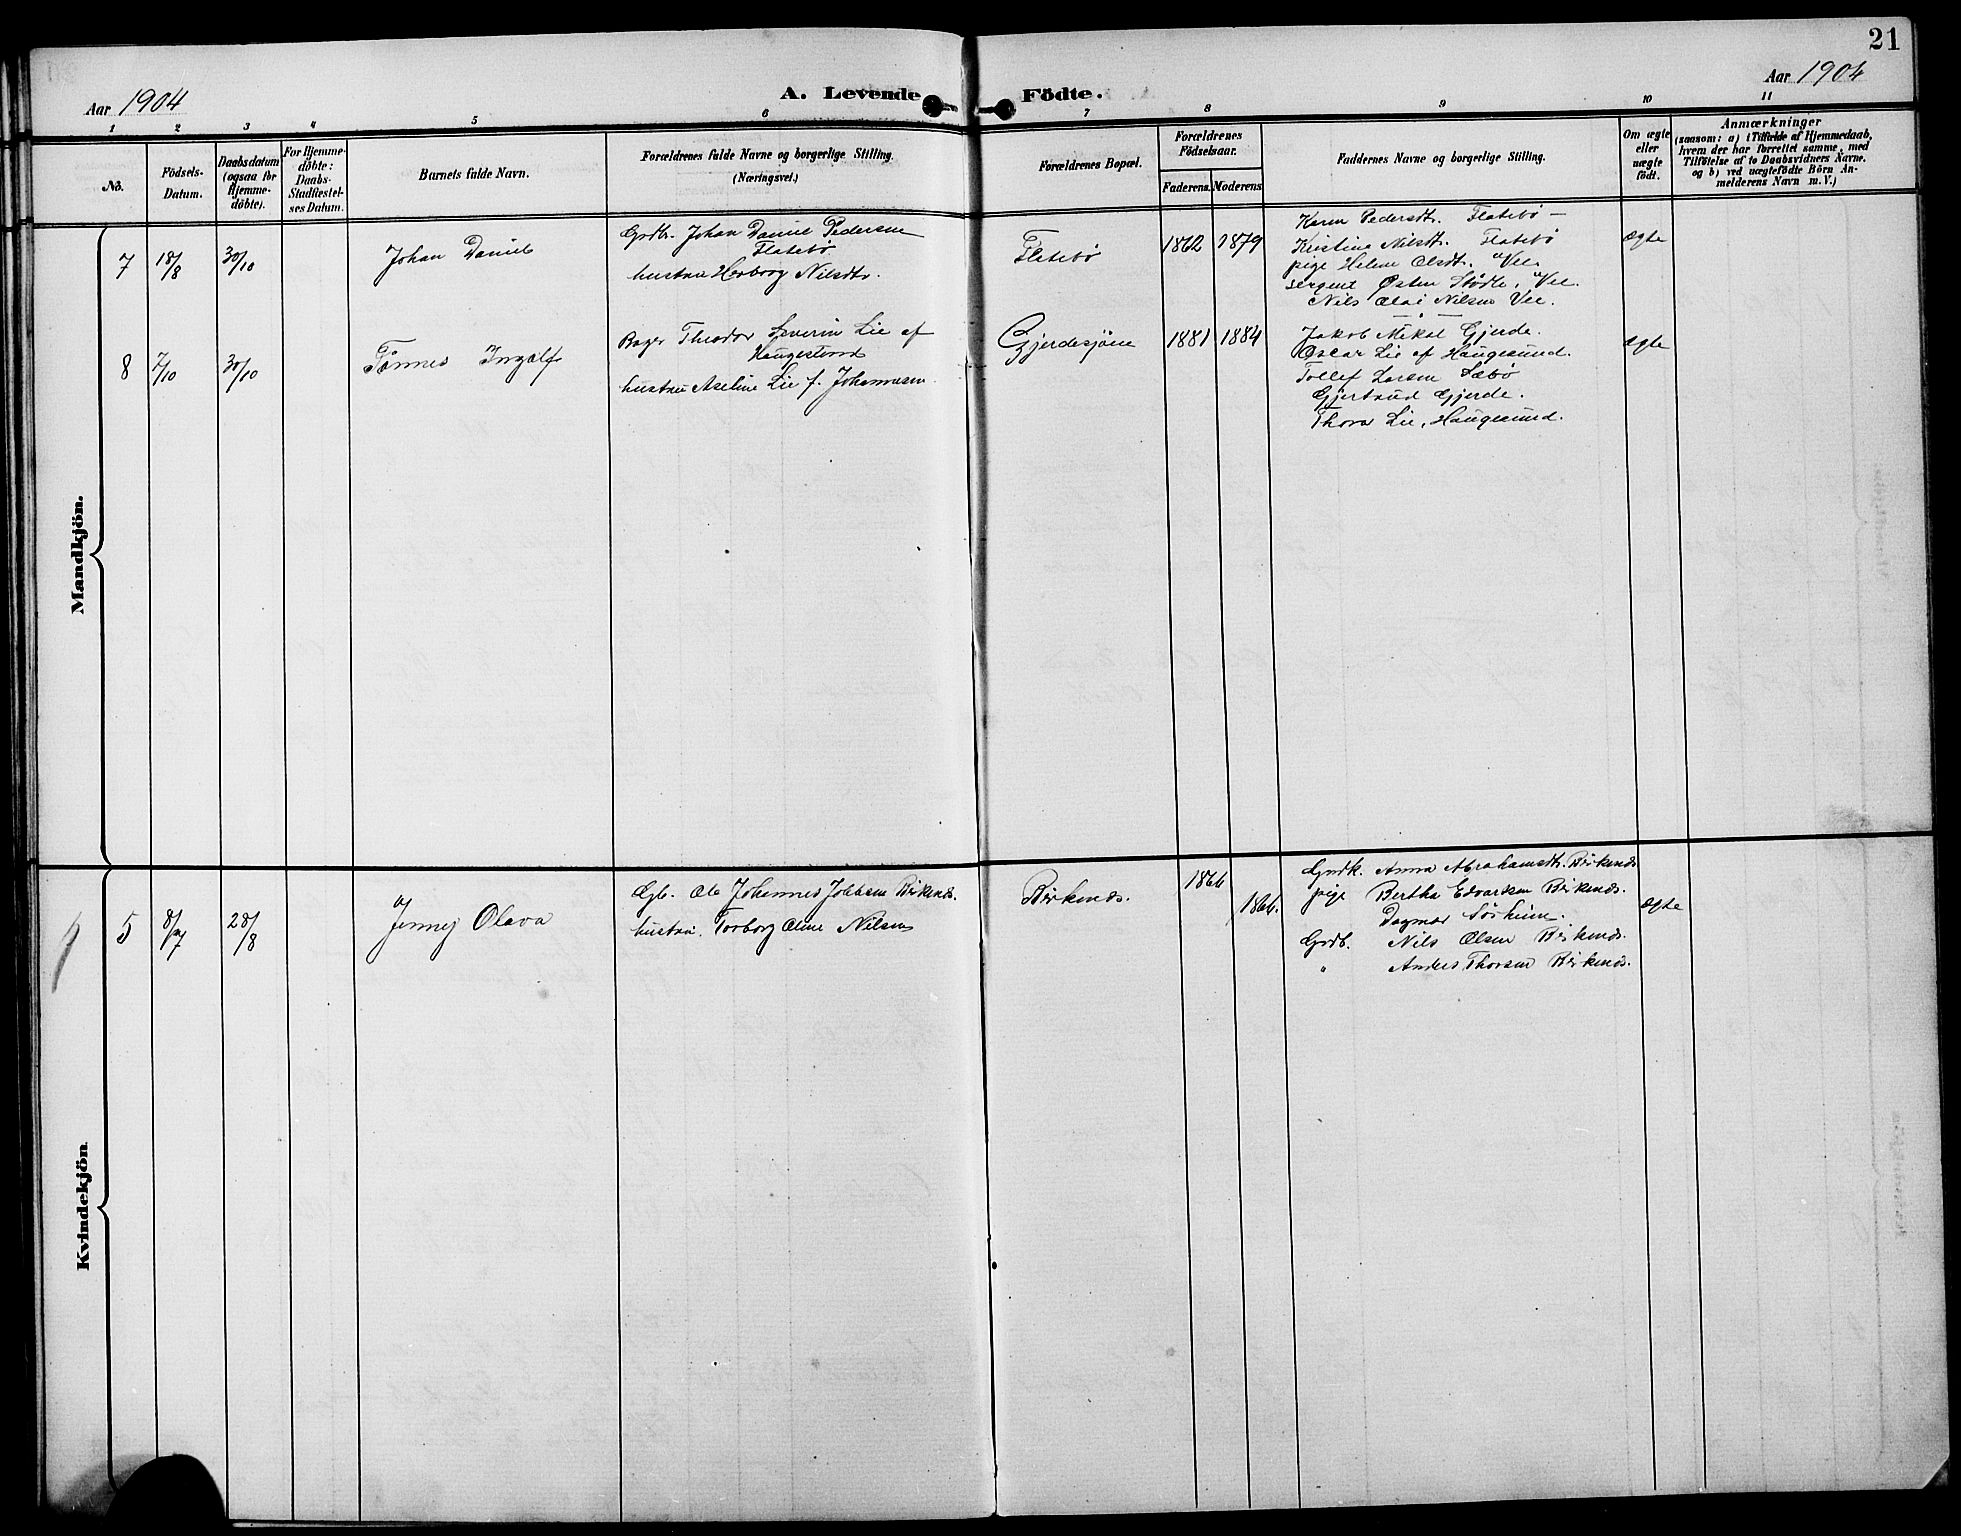 21
Aar 1904
A. Levende Födte.
Aar 1904
1 2 3 4 5 6 7 8 9 10 11
No.
Födsels-
Datum.
Daabsdatum
(ogsaa for
Hjemme-
döbte).
For Hjemme-
döbte:
Daabs-
Stadfæstel-
ses Datum.
Barnets fulde Navn.
Forældrenes fulde Navne og borgerlige Stilling.
(Næringsvei.)
Forældrenes Bopæl.
Forældrenes
Födselsaar.
Faderens. Moderens
Faddernes Navne og borgerlige Stilling.
Om ægte
eller
uægte
födt.
Anmærkninger
(saasom: a) i Tilfælde af Hjemmedaab,
hvem der har forrettet samme, med
Tilföielse af to Daabsvidners Navne.
og b) ved uægtefödte Börn An-
melderens Navn m. V.)
Mandkjön.
7 18/8 30/10 Johan Daniel
Grdb. Johan Daniel Pedersen
Flatebø
hustru Herborg Nilsdtr.
Flatebø 1862 1879
Karen Pedersdt. Flatebø —
Kristine Nilsdt. Flatebø
pige Helene Olsdt. Vee.
sergent Østen Stødle, Vee.
Nils Olai Nilsen Vee.
ægte
8 7/10 30/10 Tønnes Ingolf
Bager Theodor Severin Lie af
Haugesund
hustru Aseline Lie f. Johannesen
Gjerdesjöen 1881 1884
Jakob Mikal Gjerde.
Oscar Lie af Haugesund.
Tollef Larsen Sæbø
Gjertrud Gjerde.
Thora Lie, Haugesund.
ægte
Kvindekjön
5 8/7 28/8 Jenny Olava
Gb. Ole Johannes Jakobsen Birkenes.
hustru. Torborg Oline Nilsen
Birkenes. 1866 1866.
Grdk. Anna Abrahamsdt. Birkenes
pige Bertha Edvardsen Birkenes.
Dagmar Sørheim.
Grdb. Nils Olsen Birkenes.
" Anders Thorsen Birkenes.
ægte